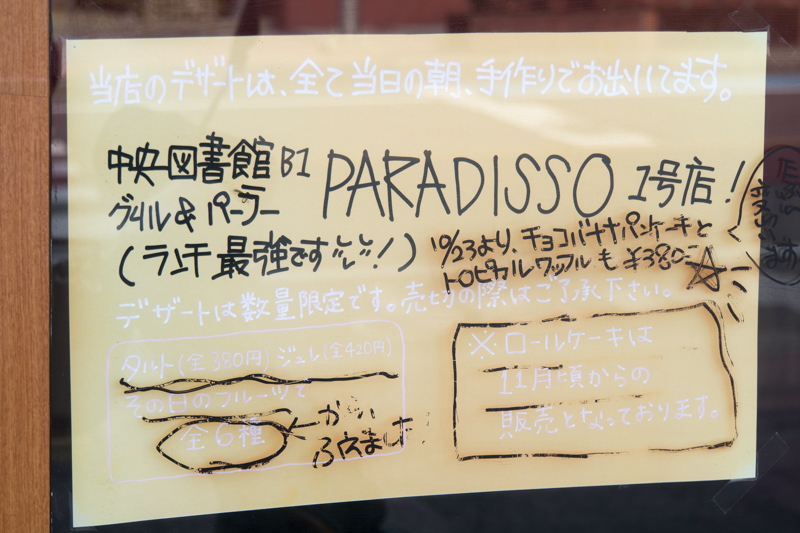 当店のデザートは、全て当日の朝、手作りでお出ししてます。
中央図書館 B1
グリル & パーラー
PARADISSO 1号店!
(ランチ最強です!)
10/23より、チョコバナナパンケーキと
トロピカルワッフルも ¥380
デザートは数量限定です。売切の際はご了承下さい。
タルト(全380円) ジュレ(全420円)
その日のフルーツで
全6種
ふえました
※ロールケーキは
11月頃からの
販売となっております。